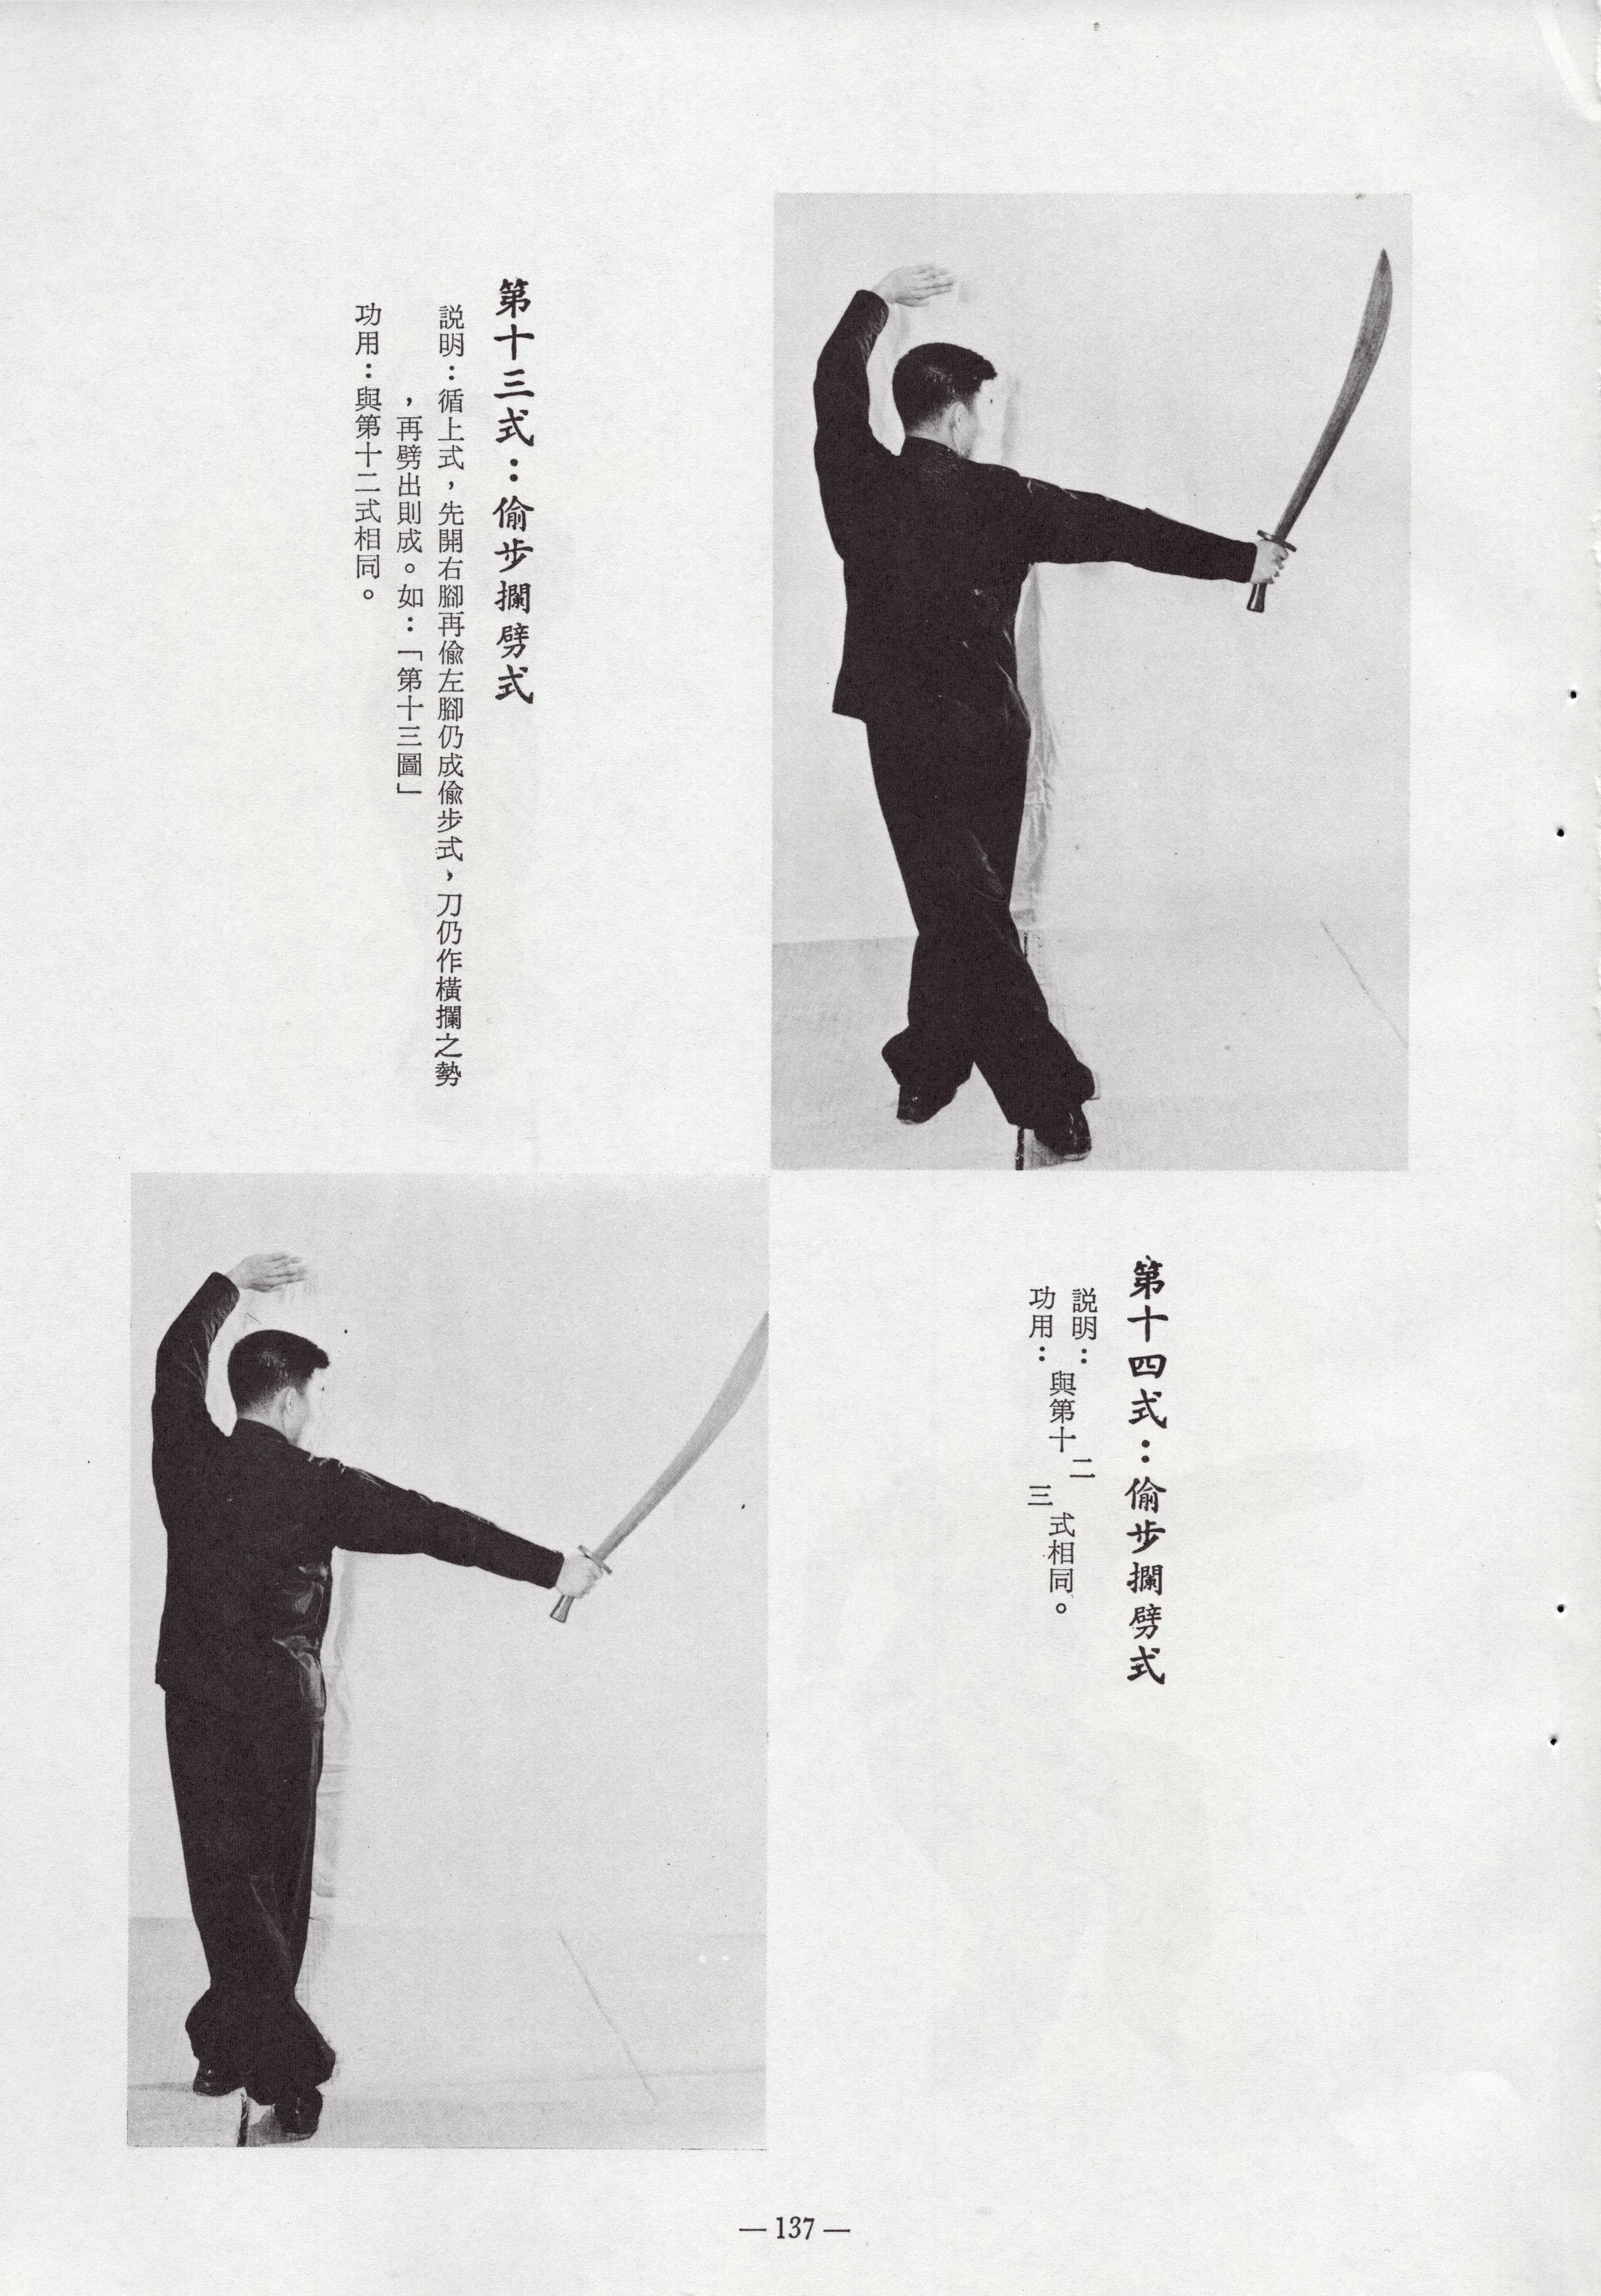 第十三式：偷步攔劈式
説明：循上式，先開右腳再偸左腳仍成偸步式，刀仍作橫攔之勢
，再劈出則成。如：「第十三圖」
功用：與第十二式相同。
第十四式：偷步攔劈式
説明：
功用：
與第十二三式相同。
— 137 —